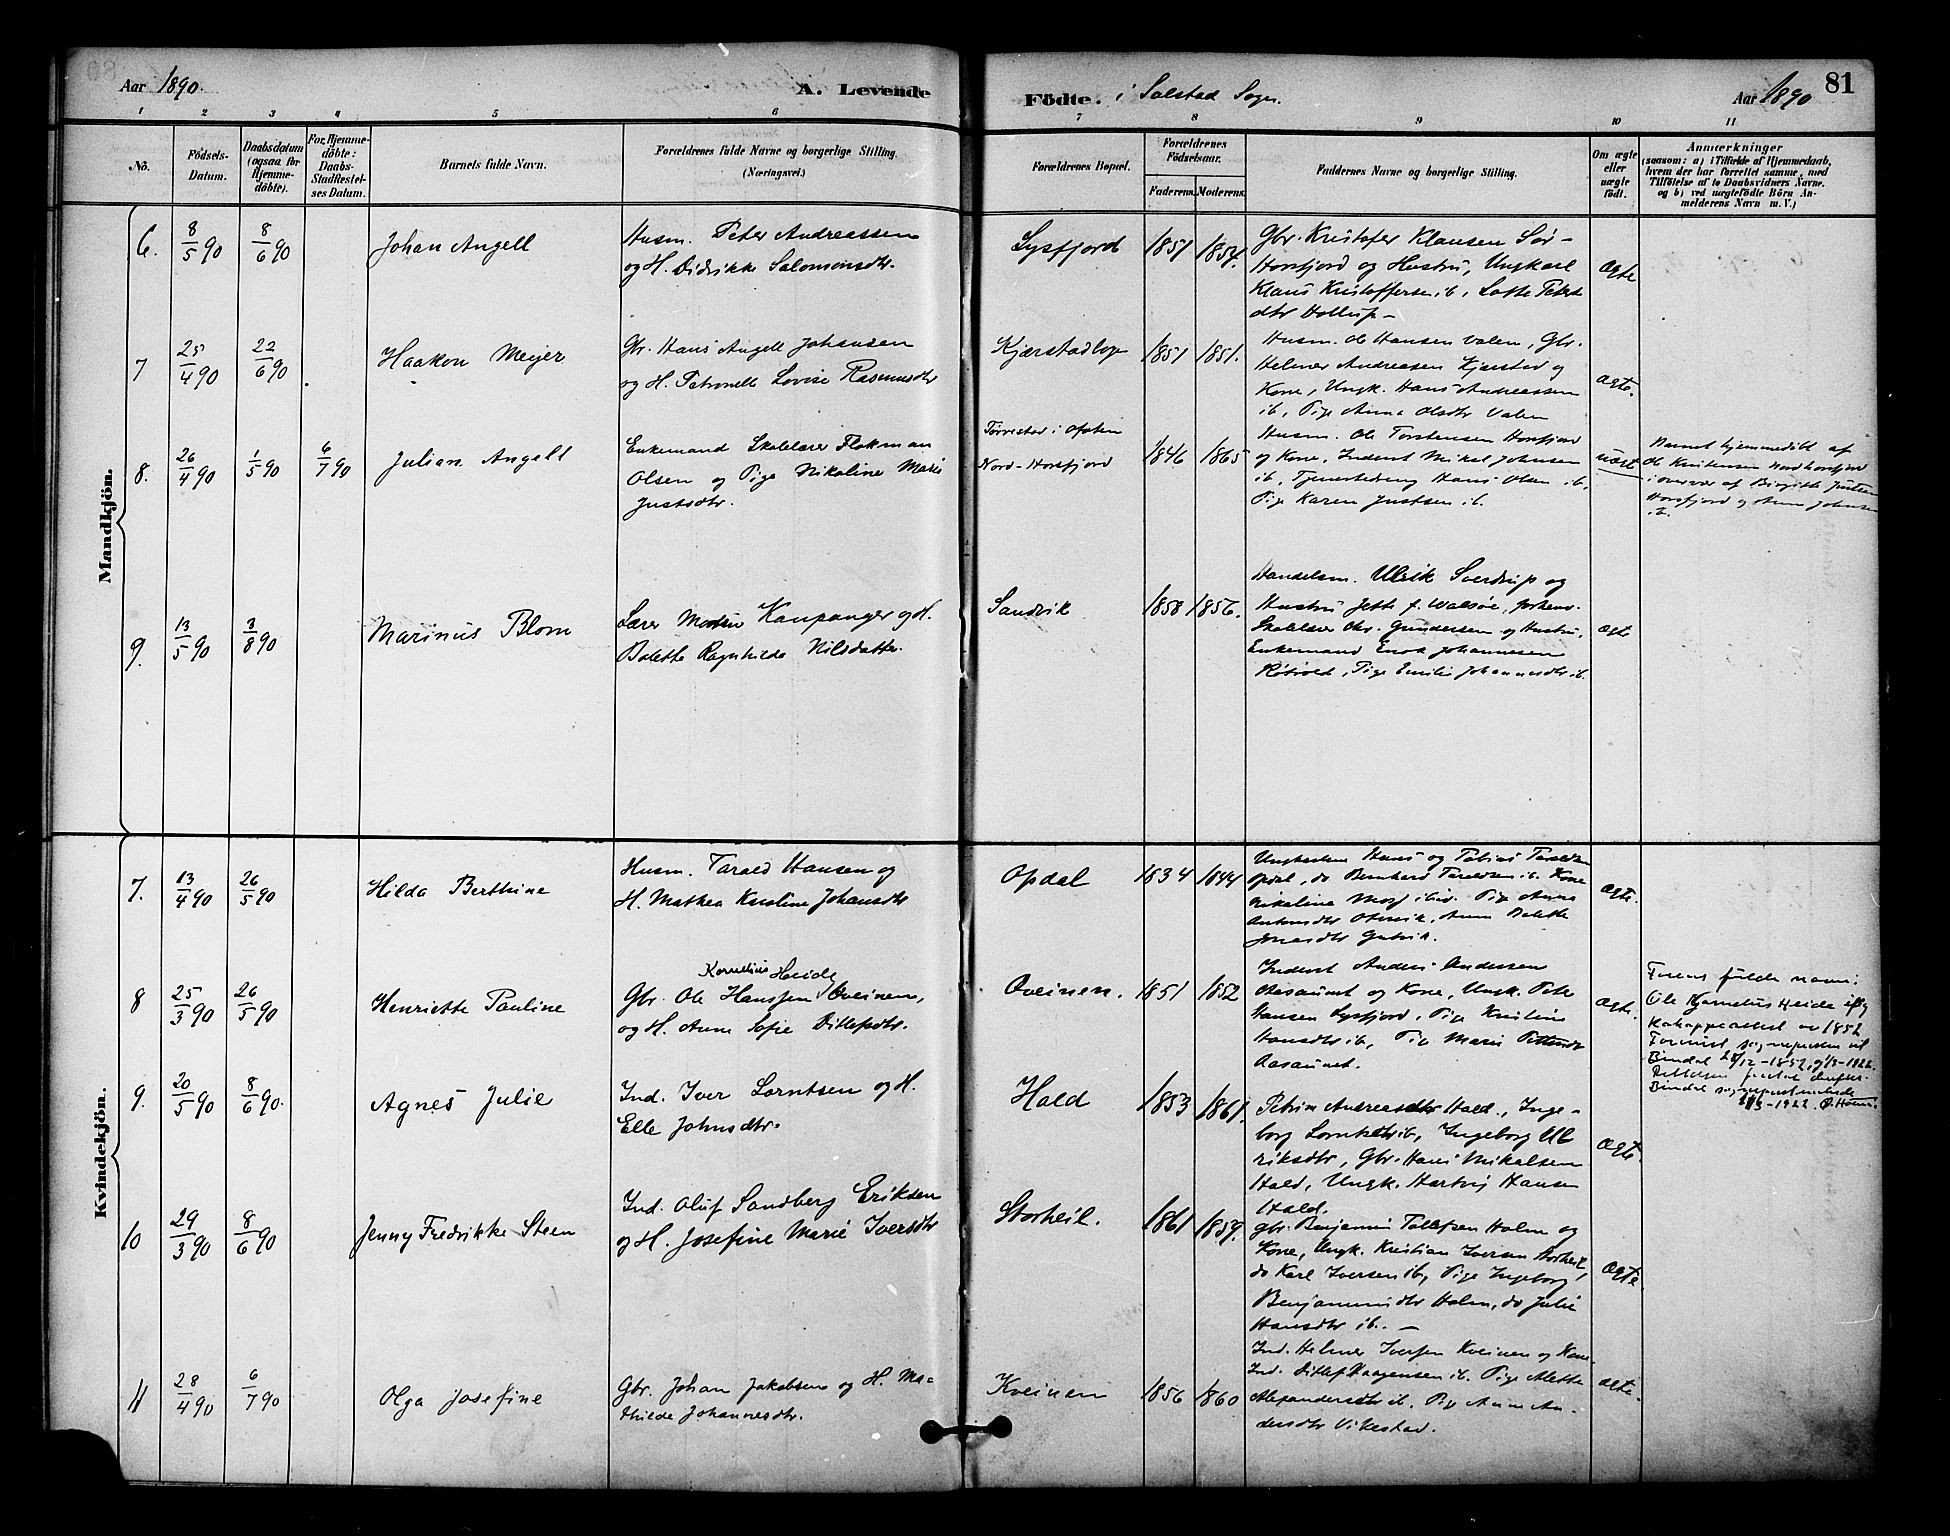 Aar 1890.
A. Levende
Födte. i Solstad Sogn.
Aar 1890
81
1 2 3 4 5 6 7 8 9 10 11
No.
Födsels-
Datum.
Daabsdatum
(ogsaa for
Hjemme-
döbte).
For Hjemme-
döbte:
Daabs-
Stadfæstel-
ses Datum.
Barnets fulde Navn.
Forældrenes fulde Navne og borgerlige Stilling.
(Næringsvei.)
Forældrenes Bopæl.
Forældrenes
Födselsaar.
Faderens. Moderens.
Faddernes Navne og borgerlige Stilling.
Om ægte
eller
uægte
födt.
Anmærkninger
(saasom: a) i Tilfælde af Hjemmedaab,
hvem der har forrettet samme, med
Tilföielse af to Daabsvidners Navne,
og b) ved uægtefödte Börn An-
melderens Navn m. V.)
Mandkjön.
6. 8/5 90 8/6 90 Johan Angell
Husm. Peter Andreassen
og H. Didrikke Salomonsdtr.
Lysfjord 1851 1854.
Gbr. Kristofer Klausen Sør-
Horsfjord og Hustru, Ungkarl
Klaus Kristoffersen ib,
dtr Hollup-
Ægte
7 25/4 90 22/6 90 Haakon Meyer
Gbr. Hans Angell Johansen
og H. Petronelle Lovise Rasmusdtr
Kjærstadlop 1851 1851.
Husm. Ole Hansen Valen, Gbr.
Helmer Andreasen Kjærstad og
Kone, Ungk. Hans Andreassen
ib, Pige Anna Olsdtr Valen
Ægte.
8. 26/4 90 1/5 90 6/7 90 Julian Angell
Enkemand Skolelærer Flokman
Olsen og Pige Nikoline Marie
Justsdtr.
Tørrestad i Ofoten
Nord-Horsfjord
1846 1865
Husm. Ole Torstensen Horsfjord
og Kone, Inderst Mikal Johnsen
ib, Tjenestedreng Hans Olsen ib,
Pige Karen Justsen ib.
uægte
Barnet hjemmedøbt af
Ole Kristensen Nordhorsfjord
i overvær af Birgitte Justsen
Horsfjord og Anne Johnsen
ib.
9. 13/5 90 3/8 90 Marinus Blom
Lærer Morten Kaupanger og H.
Bolette Ragnhilda Nilsdatter.
Sandvik 1858 1856.
Handelsm. Ulrik Sverdrup og
Hustru Jette f. Walsøe,
Skolelærer Chr. Gundersen og Hustru,
Enkemand Enok Johannesen
Røtvold, Pige Emilie Johannesdtr ib.
Ægte
Kvindekjön.
7. 13/4 90 26/5 90 Hilda Berthine
Husm. Tarald Hansen og
H. Mathea Karoline Johansdtr
Opdal 1834 1844
Ungkarlene Hans og Tobias Taraldsen
Opdal, do Bernhard Taraldsen ib. Kone
Nikoline Moe ibid. Pige Anna
Antonsdtr Otervik, Anne Bolette
Jonasdtr
Ægte.
8 25/3 90 26/5 90 Henriette Pauline
Kornelius Heide
Gbr. Ole Hanssen Qveinen,
og H. Anne Sofie Ditlefsdtr.
Qveinen. 1851 1852
Inderst Anders Andersen
Aasaunet og Kone, Ungk. Peter
Hansen Lysfjord, Pige Kristine
Hansdtr ib, Pige Marie
Aasaunet.
Ægte.
Farens fulde navn:
Ole Kornelius Heide iflg
koksppeattest av 1852
sognepresten til
Bindal 28/12-1852, 9/3-1922.
Bindal sogneprestembede
9/3-1922. O. Holm.
9. 20/5 90 8/6 90. Agnes Julie
Ind. Iver Lorntsen og H.
Elle Johnsdtr.
Hald 1853 1861.
Petrin Andreasdtr Hald., Inge-
borg Lorntsdtr ib, Ingeborg Ul
riksdtr, Gbr. Hans Mikalsen
Hald, Ungk. Hartvig Hansen
Hald.
Ægte.
10 29/3 90 8/6 90 Jenny Fredrikke Steen
Ind. Oluf Sandberg Eriksen
og H. Josefine Marie Iversdtr
Storheil. 1861 1859.
Gbr. Benjamin Tollefsen Holm og
Kone, Ungk. Kristian Iversen Storheil,
do Karl Iversen ib, Pige Ingeborg
Benjaminsdtr Holm, do Julie
Hansdtr ib. —
Ægte
11 28/4 90 6/7 90 Olga Josefine
Gbr. Johan Jakobsen og H. Ma-
thilde Johannesdtr.
Kveinen 1856 1860
Ind. Helmer Iversen Kveinen og Kone
Ind. Ditlef Haagensen ib. Pige Alette
Alexandersdtr ib. Pige Anne An-
dersdtr Vikestad.
Ægte.